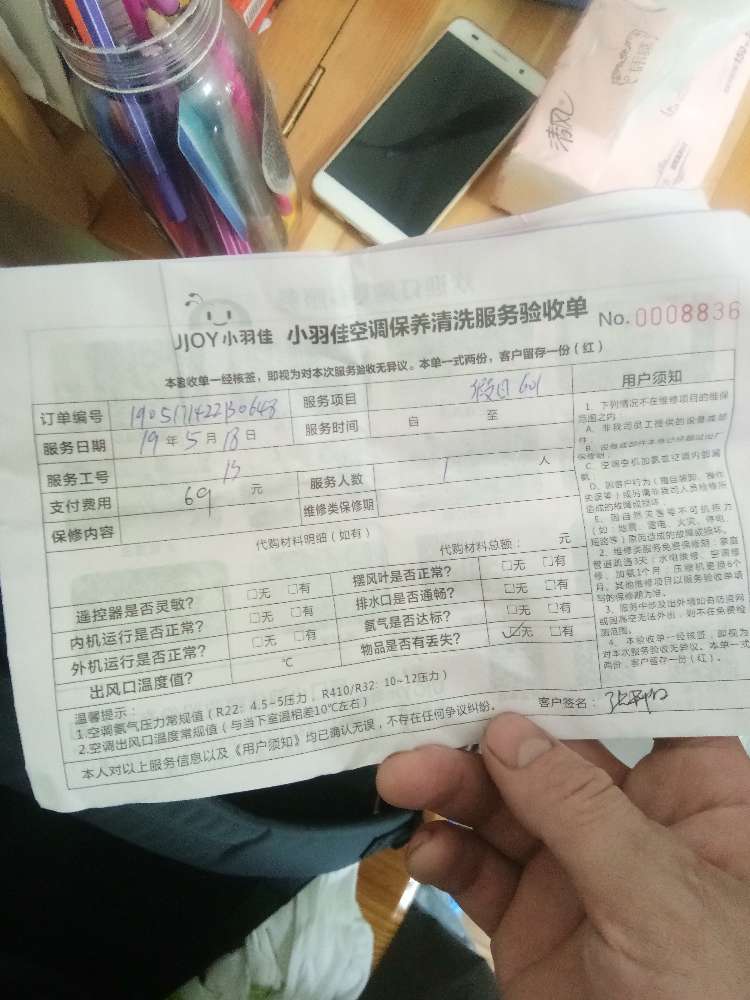 清风
UJOY小羽佳 小羽佳空调保养清洗服务验收单 No. 0008836
本验收单一经核签，即视为对本次服务验收无异议。本单一式两份，客户留存一份（红）
订单编号 190517142230648 服务项目 假日601
服务日期 19年5月18日 服务时间 自 至
服务工号 13 服务人数 1 人
支付费用 69 元 维修类保修期
保修内容
代购材料明细（如有） 代购材料总额： 元
遥控器是否灵敏？ □无 □有 摆风叶是否正常？ □无 □有
内机运行是否正常？ □无 □有 排水口是否通畅？ □无 □有
外机运行是否正常？ □无 □有 氨气是否达标？ □无 □有
出风口温度值？ ℃ 物品是否有丢失？ ☑无 □有
温馨提示：
1.空调氨气压力常规值（R22：4.5~5压力，R410/R32：10~12压力）
2.空调出风口温度常规值（与当下室温相差10℃左右）
本人对以上服务信息以及《用户须知》均已确认无误，不存在任何争议纠纷。
客户签名：
用户须知
1、下列情况不在维修项目的维保
范围之内
A、非我司员工提供的设备或部
件
C、空调空机加氨
D、因客户行为
失误等）或转请非我司人员检修所
造成的故障或损坏
E、因自然灾害等不可抗拒力
（如：地震、雷电、火灾、停电、
短路等）致因造成的故障或损坏。
2、维修类服务免费保修期：家庭
管道疏通3天；水电维修、空调维
修、加氨1个月；压缩机更换6个
月。其他维修项目以服务验收单填
写的保修期为准。
3、服务中涉及出外墙如有防盗网
或因高空无法外出，则不在免费检
测范围。
4、本验收单一经核签，即视为
对本次服务验收无异议。本单一式
两份，客户留存一份（红）。